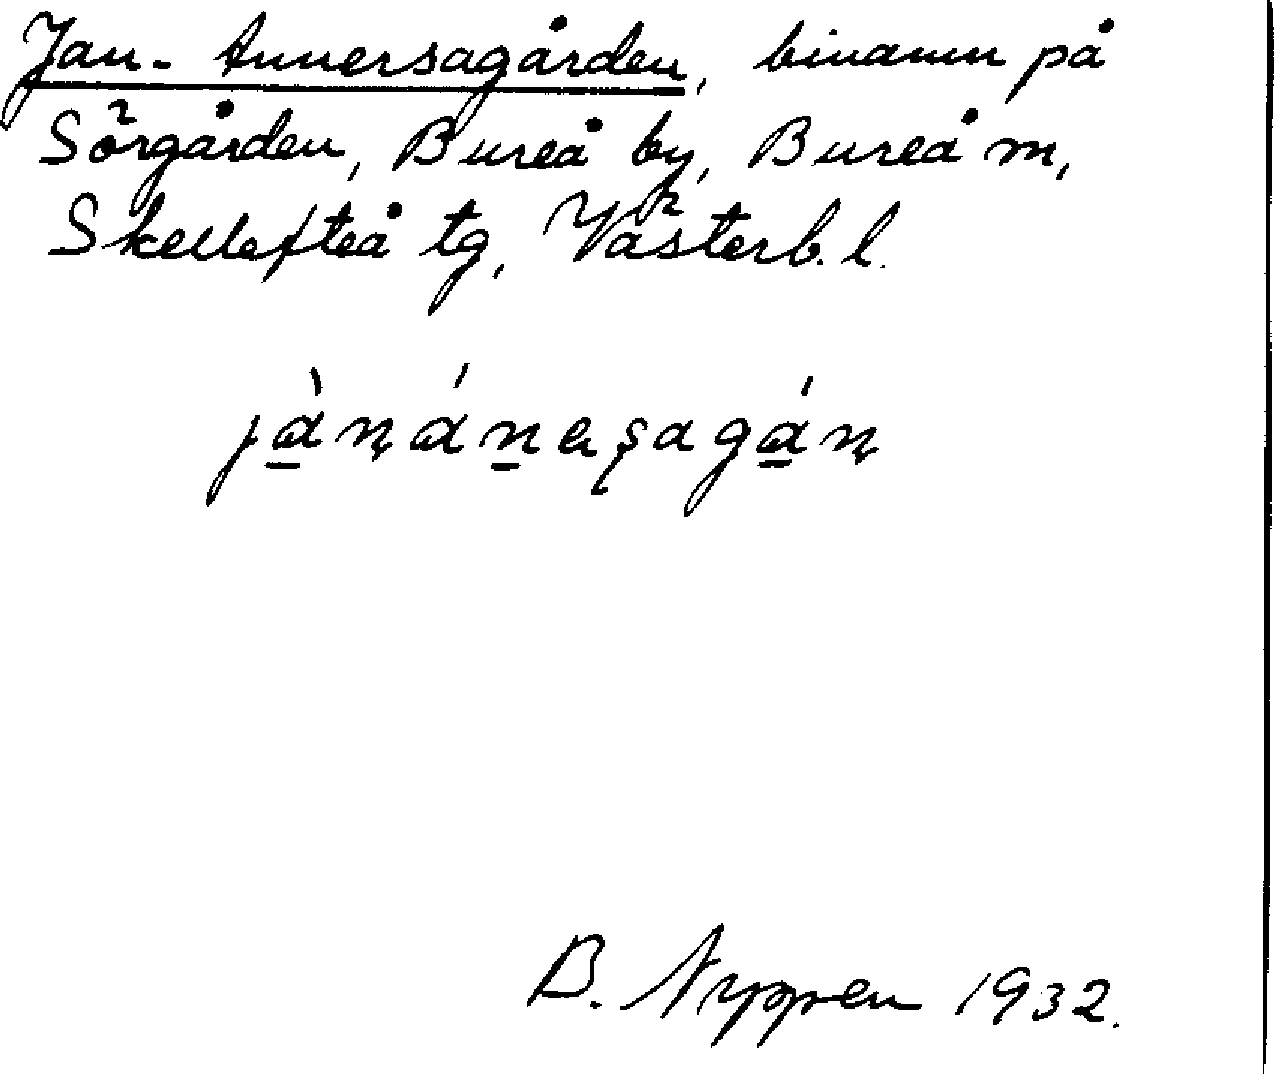 Jan-Annersagården, binamn på
Sörgården, Bureå by, Bureå m,
Skellefteå tg, Västerb. l.
B. Nyppen 1932.